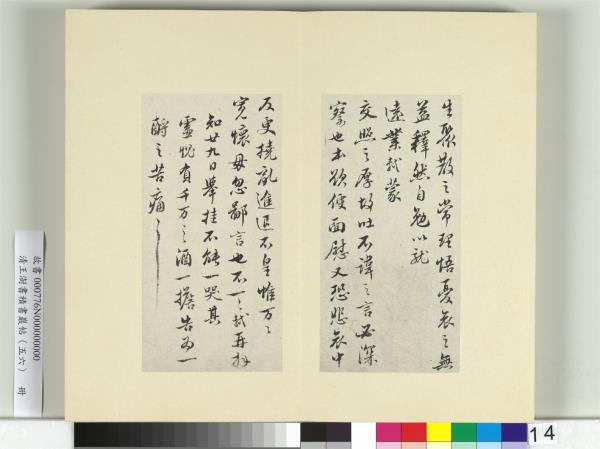 生聚散之常理悟憂哀之無
益釋然自勉以就
遠業軾蒙
交照之厚故吐不諱之言必深
察也本欲便面慰又恐悲哀中
反更撓亂進退不皇惟萬萬
寬懷毋忽鄙言也不一一軾再拜
知廿九日舉挂不能一哭其
靈愧負千万千万酒一擔告為一
酹之苦痛苦痛
故書000776N000000000
清王澍書積書巖帖(五六) 冊
14